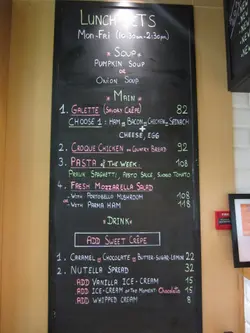 LUNCH SETS
MON-FRI (10:30AM-2:30PM)
SOUP
PUMPKIN SOUP
OR
ONION SOUP
MAIN
1. GALETTE (SAVORY CRÊPE) 82
CHOOSE 1: HAM or BACON or CHICKEN or SPINACH
+
CHEESE, EGG
2. CROQUE CHICKEN on COUNTRY BREAD 92
3. PASTA OF THE WEEK 108
PRAWN SPAGHETTI, PESTO SAUCE, SUNDRIED TOMATO
4. FRESH MOZZARELLA SALAD
- WITH PORTOBELLO MUSHROOM 108
- WITH PARMA HAM 118
DRINK
ADD SWEET CRÊPE
1. CARAMEL or CHOCOLATE or BUTTER-SUGAR-LEMON 22
2. NUTELLA SPREAD 32
ADD VANILLA ICE-CREAM 15
ADD ICE-CREAM OF THE MOMENT: Chocolate 15
ADD WHIPPED CREAM 8